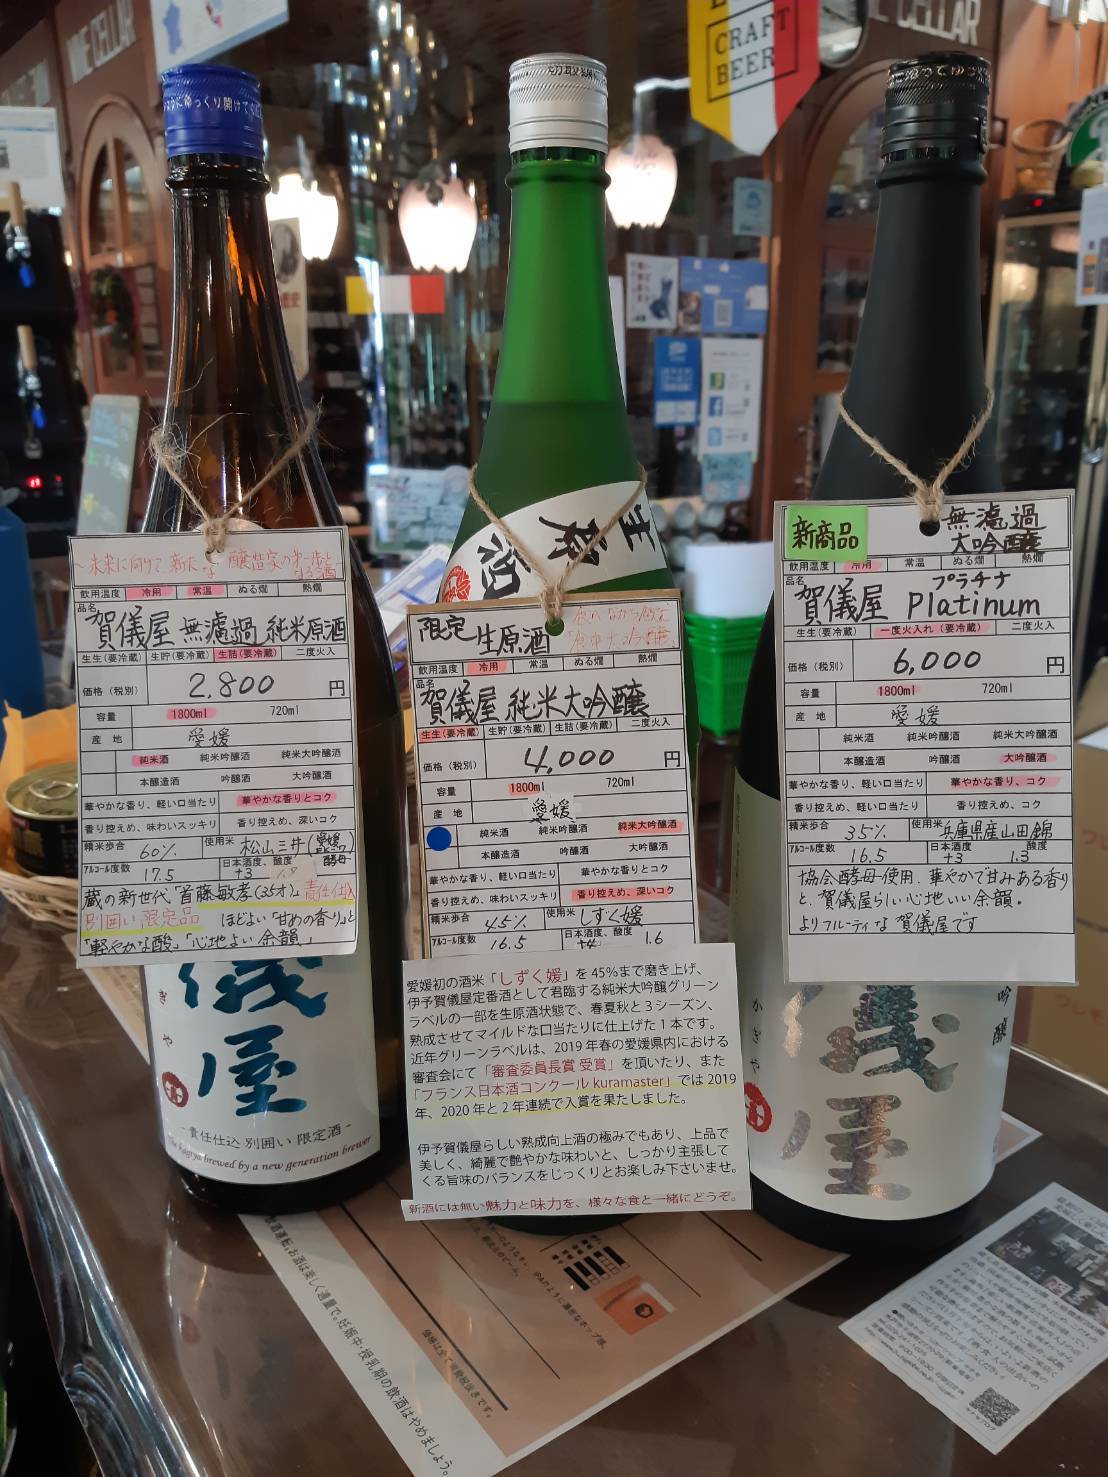 WINE CELLAR
CRAFT
BEER
~未来に向けて新たな醸造家の第一歩と
なる酒~
飲用温度 冷用 常温 ぬる燗 熱燗
品名
賀儀屋 無濾過 純米原酒
生生(要冷蔵) 生貯(要冷蔵) 生詰(要冷蔵) 二度火入
価格(税別) 2,800 円
容量 1800ml 720ml
産地 愛媛
純米酒 純米吟醸酒 純米大吟醸酒
本醸造酒 吟醸酒 大吟醸酒
華やかな香り、軽い口当たり 華やかな香りとコク
香り控えめ、味わいスッキリ 香り控えめ、深いコク
精米歩合 60% 使用米 松山三井(愛媛
酵母)
アルコール度数 17.5 日本酒度、酸度 +3 1.9
蔵の新世代「首藤敏孝(35才)」責任仕込
別囲い限定品 ほどよい「甘めの香り」と
「軽やかな酸」「心地よい余韻」
儀
屋
かぎや
-責任仕込 別囲い 限定酒-
The Kagiya brewed by a new generation brewer
生原酒
限定 生原酒
食べながら飲む
「食中大吟醸」
飲用温度 冷用 常温 ぬる燗 熱燗
品名
賀儀屋 純米大吟醸
生生(要冷蔵) 生貯(要冷蔵) 生詰(要冷蔵) 二度火入
価格(税別) 4,000 円
容量 1800ml 720ml
産地 愛媛
純米酒 純米吟醸酒 純米大吟醸酒
本醸造酒 吟醸酒 大吟醸酒
華やかな香り、軽い口当たり 華やかな香りとコク
香り控えめ、味わいスッキリ 香り控えめ、深いコク
精米歩合 45% 使用米 しずく媛
アルコール度数 16.5 日本酒度、酸度 +4 1.6
愛媛初の酒米「しずく媛」を45%まで磨き上げ、
伊予賀儀屋定番酒として君臨する純米大吟醸グリーン
ラベルの一部を生原酒状態で、春夏秋と3シーズン、
熟成させてマイルドな口当たりに仕上げた1本です。
近年グリーンラベルは、2019年春の愛媛県内における
審査会にて「審査委員長賞 受賞」を頂いたり、また
「フランス日本酒コンクール kuramaster」では2019
年、2020年と2年連続で入賞を果たしました。
伊予賀儀屋らしい熟成向上酒の極みでもあり、上品で
美しく、綺麗で艶やかな味わいと、しっかり主張して
くる旨味のバランスをじっくりとお楽しみ下さいませ。
新酒には無い魅力と味力を、様々な食と一緒にどうぞ。
新商品
無濾過
大吟醸
飲用温度 冷用 常温 ぬる燗 熱燗
品名
賀儀屋 プラチナ
Platinum
生生(要冷蔵) 一度火入れ(要冷蔵) 二度火入
価格(税別) 6,000 円
容量 1800ml 720ml
産地 愛媛
純米酒 純米吟醸酒 純米大吟醸酒
本醸造酒 吟醸酒 大吟醸酒
華やかな香り、軽い口当たり 華やかな香り、コク
香り控えめ、味わいスッキリ 香り控えめ、深いコク
精米歩合 35% 使用米 兵庫県産山田錦
アルコール度数 16.5 日本酒度 +3 酸度 1.3
協会酵母使用、華やかで甘みある香り
と、賀儀屋らしい心地いい余韻。
よりフルーティな賀儀屋です
儀
屋
かぎや
吟醸
お酒は楽しく適量で。妊娠中・授乳期の飲酒はやめましょう。
価格は全て消費税抜きです。